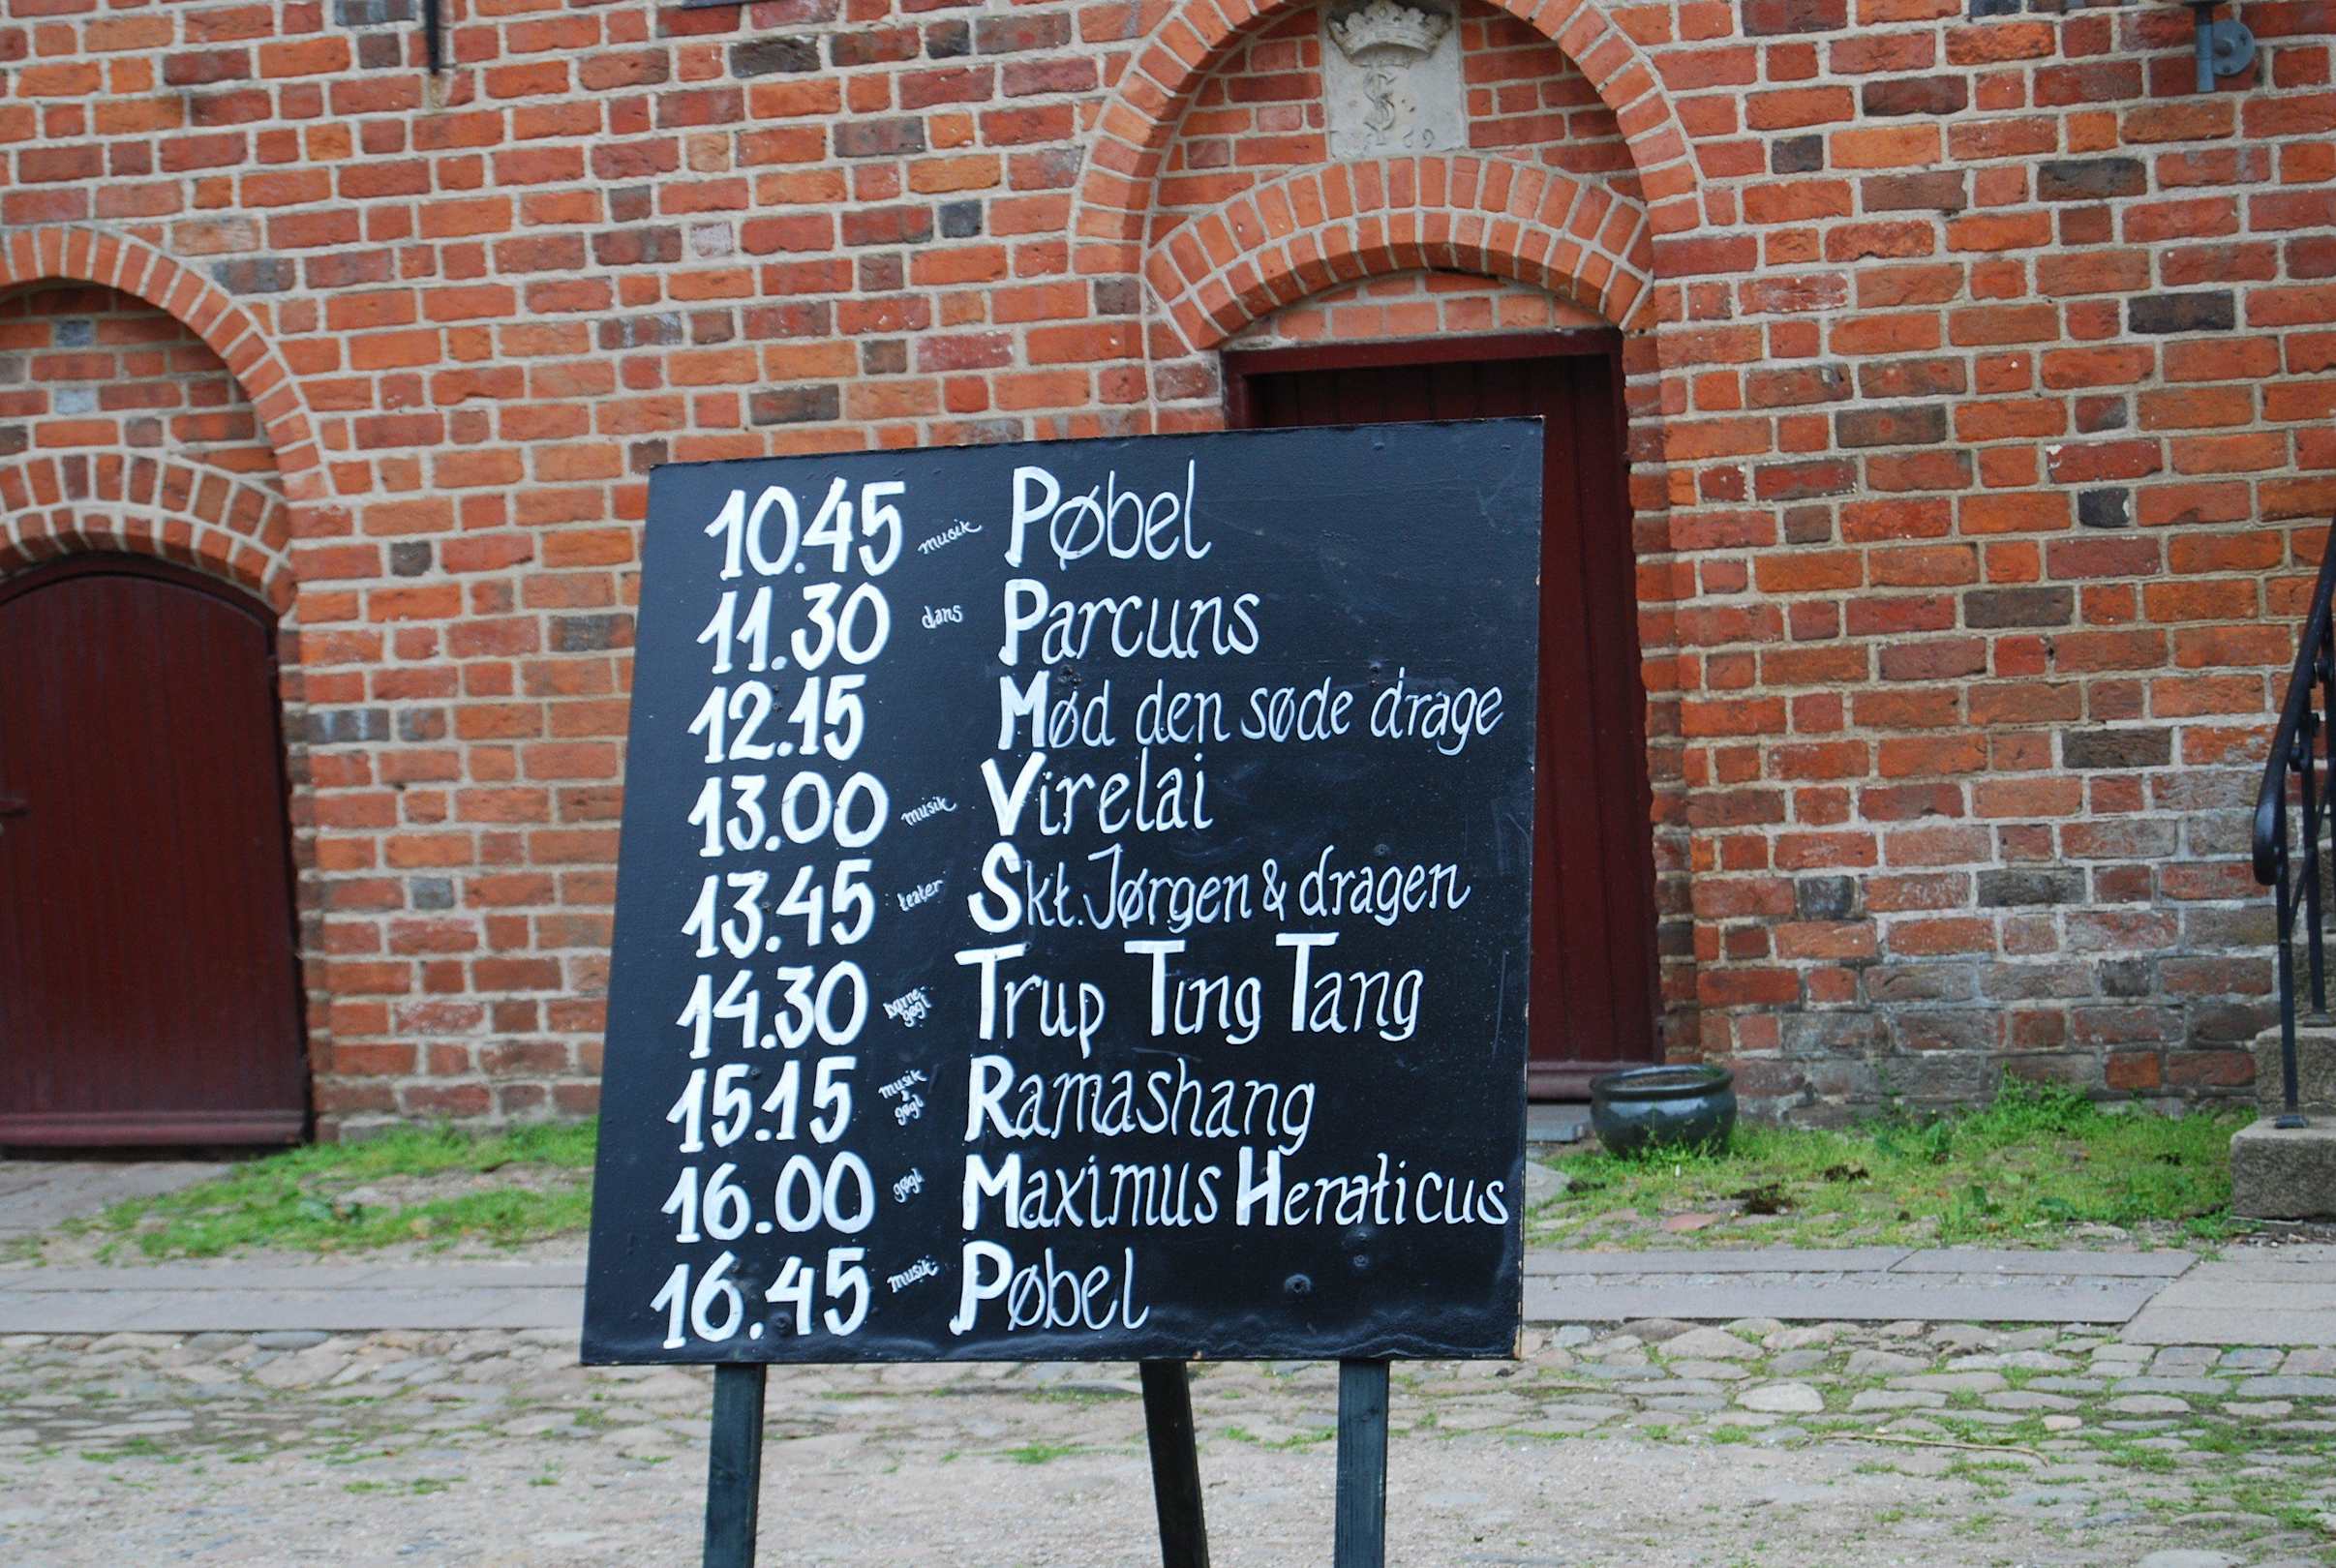 10.45 musik Pøbel
11.30 dans Parcuns
12.15 Mød den søde drage
13.00 musik Virelai
13.45 teater Skt. Jørgen & dragen
14.30 børne- gøgl Trup Ting Tang
15.15 musik & gøgl Ramashang
16.00 gøgl Maximus Heraticus
16.45 musik Pøbel